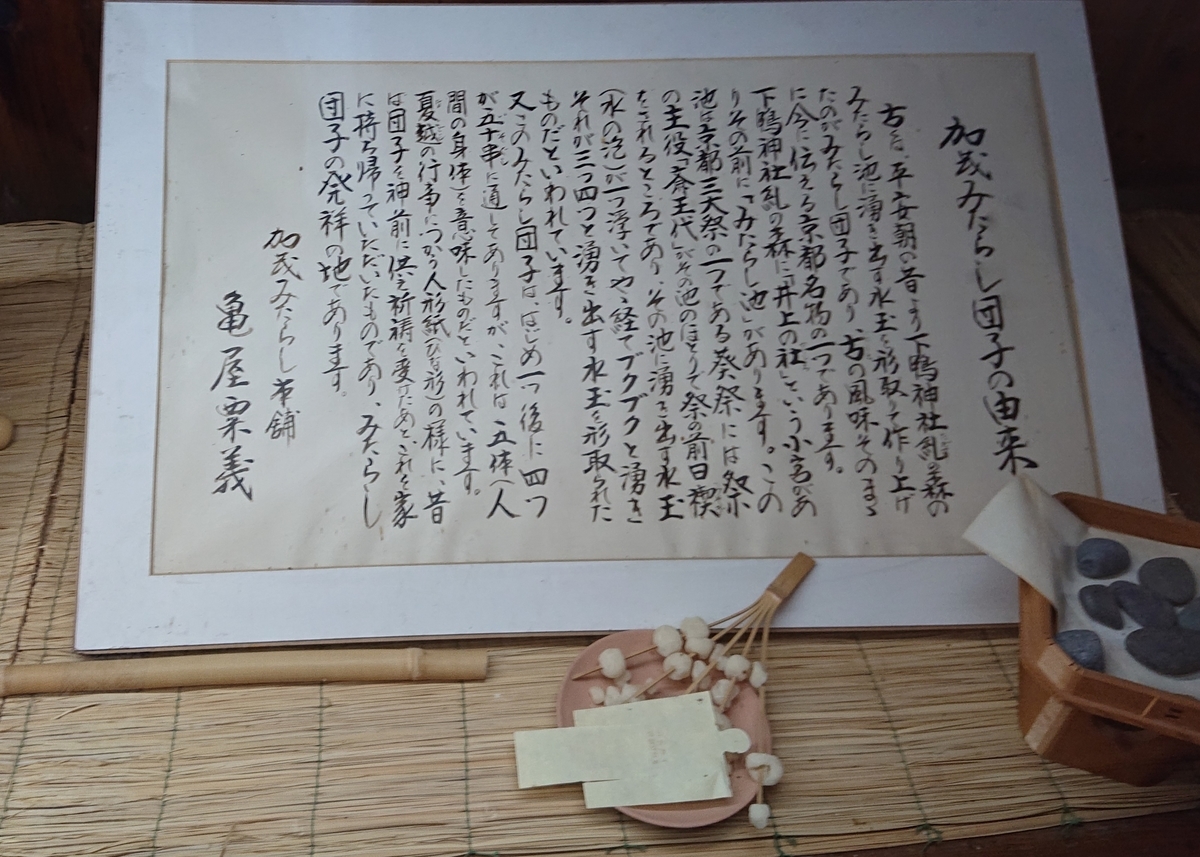 加茂みたらし団子の由来
古は、平安朝の昔より下鴨神社糺の森の
みたらし池に湧き出す水玉を形取って作り上げ
たのがみたらし団子であり、古の風味そのまゝ
に今に伝える京都名物の一つであります。
下鴨神社糺の森に「井上の社」という小宮があ
りその前に「みたらし池」があります。この
池は京都三大祭の一つである葵祭には祭
の主役「斎王代」がその池のほとりで祭の前日禊
をされるところであり、その池に湧き出す水玉
(水の泡)が一つ浮いてやゝ経てブクブクと湧き
それが三つ四つと湧き出す水玉を形取られた
ものだといわれています。
又このみたらし団子は、はじめ一つ後に四つ
が五十串に通してありますが、これは、五体(人
間の身体)を意味したものだといわれています。
夏越の行事につかう人形紙(ひな形)の様に、昔
は団子を神前に供え祈祷を受けたあと、これを家
に持ち帰っていただいたものであり、みたらし
団子の発祥の地であります。
加茂みたらし本舗
亀屋粟義